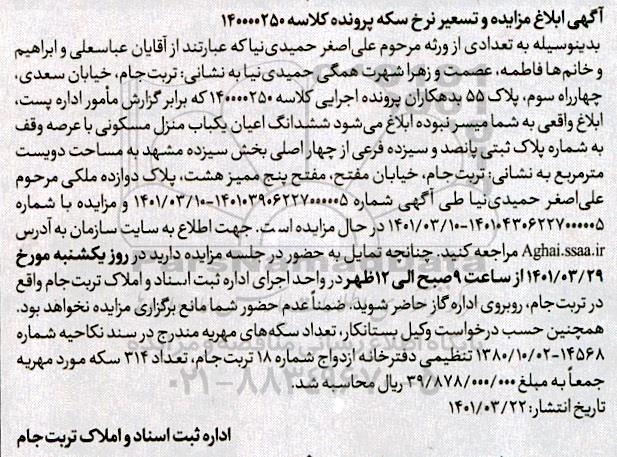 آگهی ابلاغ مزایده و تسعیر نرخ سکه پرونده کلاسه ۱۴۰۰۰۰۲۵۰
بدینوسیله به تعدادی از ورثه مرحوم علی‌اصغر حمیدی‌نیا که عبارتند از آقایان عباسعلی و ابراهیم
و خانم‌ها فاطمه، عصمت و زهرا شهرت همگی حمیدی‌نیا به نشانی: تربت‌جام، خیابان سعدی،
چهارراه سوم، پلاک ۵۵ بدهکاران پرونده اجرایی کلاسه ۱۴۰۰۰۰۲۵۰ که برابر گزارش مأمور اداره پست،
ابلاغ واقعی به شما میسر نبوده ابلاغ می‌شود ششدانگ اعیان یکباب منزل مسکونی با عرصه وقف
به شماره پلاک ثبتی پانصد و سیزده فرعی از چهار اصلی بخش سیزده مشهد به مساحت دویست
مترمربع به نشانی: تربت‌جام، خیابان مفتح، مفتح پنج ممیز هشت، پلاک دوازده ملکی مرحوم
علی‌اصغر حمیدی‌نیا طی آگهی شماره ۱۴۰۱۰۳۹۰۶۲۲۷۰۰۰۰۰۵-۱۴۰۱/۰۳/۱۰ و مزایده با شماره
۱۴۰۱۰۴۳۰۶۲۲۷۰۰۰۰۰۵-۱۴۰۱/۰۳/۱۰ در حال مزایده است. جهت اطلاع به سایت سازمان به آدرس
Aghai.ssaa.ir مراجعه کنید. چنانچه تمایل به حضور در جلسه مزایده دارید در روز یکشنبه مورخ
۱۴۰۱/۰۳/۲۹ از ساعت ۹ صبح الی ۱۲ ظهر در واحد اجرای اداره ثبت اسناد و املاک تربت‌جام واقع
در تربت‌جام، روبروی اداره گاز حاضر شوید. ضمناً عدم حضور شما مانع برگزاری مزایده نخواهد بود.
همچنین حسب درخواست وکیل بستانکار، تعداد سکه‌های مهریه مندرج در سند نکاحیه شماره
۱۴۵۶۸-۱۳۸۰/۱۰/۰۲ تنظیمی دفترخانه ازدواج شماره ۱۸ تربت‌جام، تعداد ۳۱۴ سکه مورد مهریه
جمعاً به مبلغ ۳۹/۸۷۸/۰۰۰/۰۰۰ ریال محاسبه شد.
تاریخ انتشار: ۱۴۰۱/۰۳/۲۲
اداره ثبت اسناد و املاک تربت جام